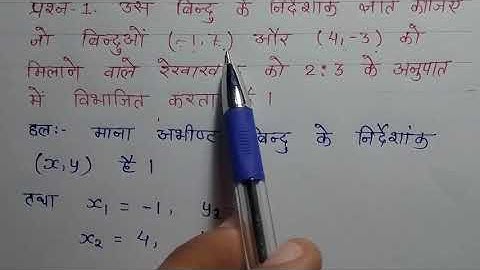 प्रश्न-1. उस बिन्दु के निर्देशांक ज्ञात कीजिए
जो बिन्दुओं (-1, 7) और (4, -3) को
मिलाने वाले को 2:3 के अनुपात
में विभाजित करता है ।
हल:- माना अभीष्ट बिन्दु के निर्देशांक
(x, y) है ।
तथा x₁ = -1, y₂
x₂ = 4,